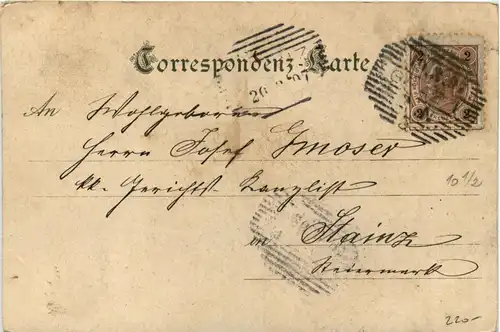 Correspondenz-Karte
2
An Wohlgeboren
Herrn Josef Gmoser
kk. Gerichts-Kanzlist
in Stainz
Steiermark
10 1/2
220-